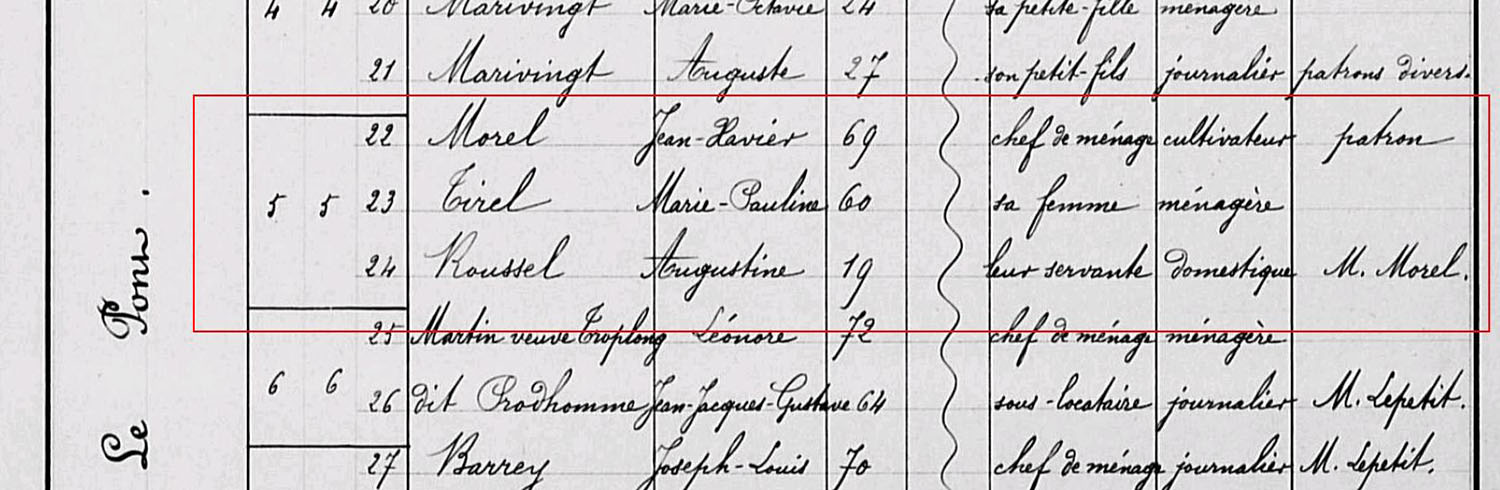 4 4 20 Marivingt Marie-Octavie 24 sa petite-fille ménagère
21 Marivingt Auguste 27 son petit-fils journalier patrons divers.
22 Morel Jean-Xavier 69 chef de ménage cultivateur patron
5 5 23 Tirel Marie-Pauline 60 sa femme ménagère
24 Roussel Augustine 19 leur servante domestique M. Morel.
25 Martin veuve Troplong Léonore 72 chef de ménage ménagère
6 6 26 dit Prodhomme Jean-Jacques-Gustave 64 sous-locataire journalier M. Lepetit.
27 Barrey Joseph-Louis 70 chef de ménage journalier M. Lepetit.
Le